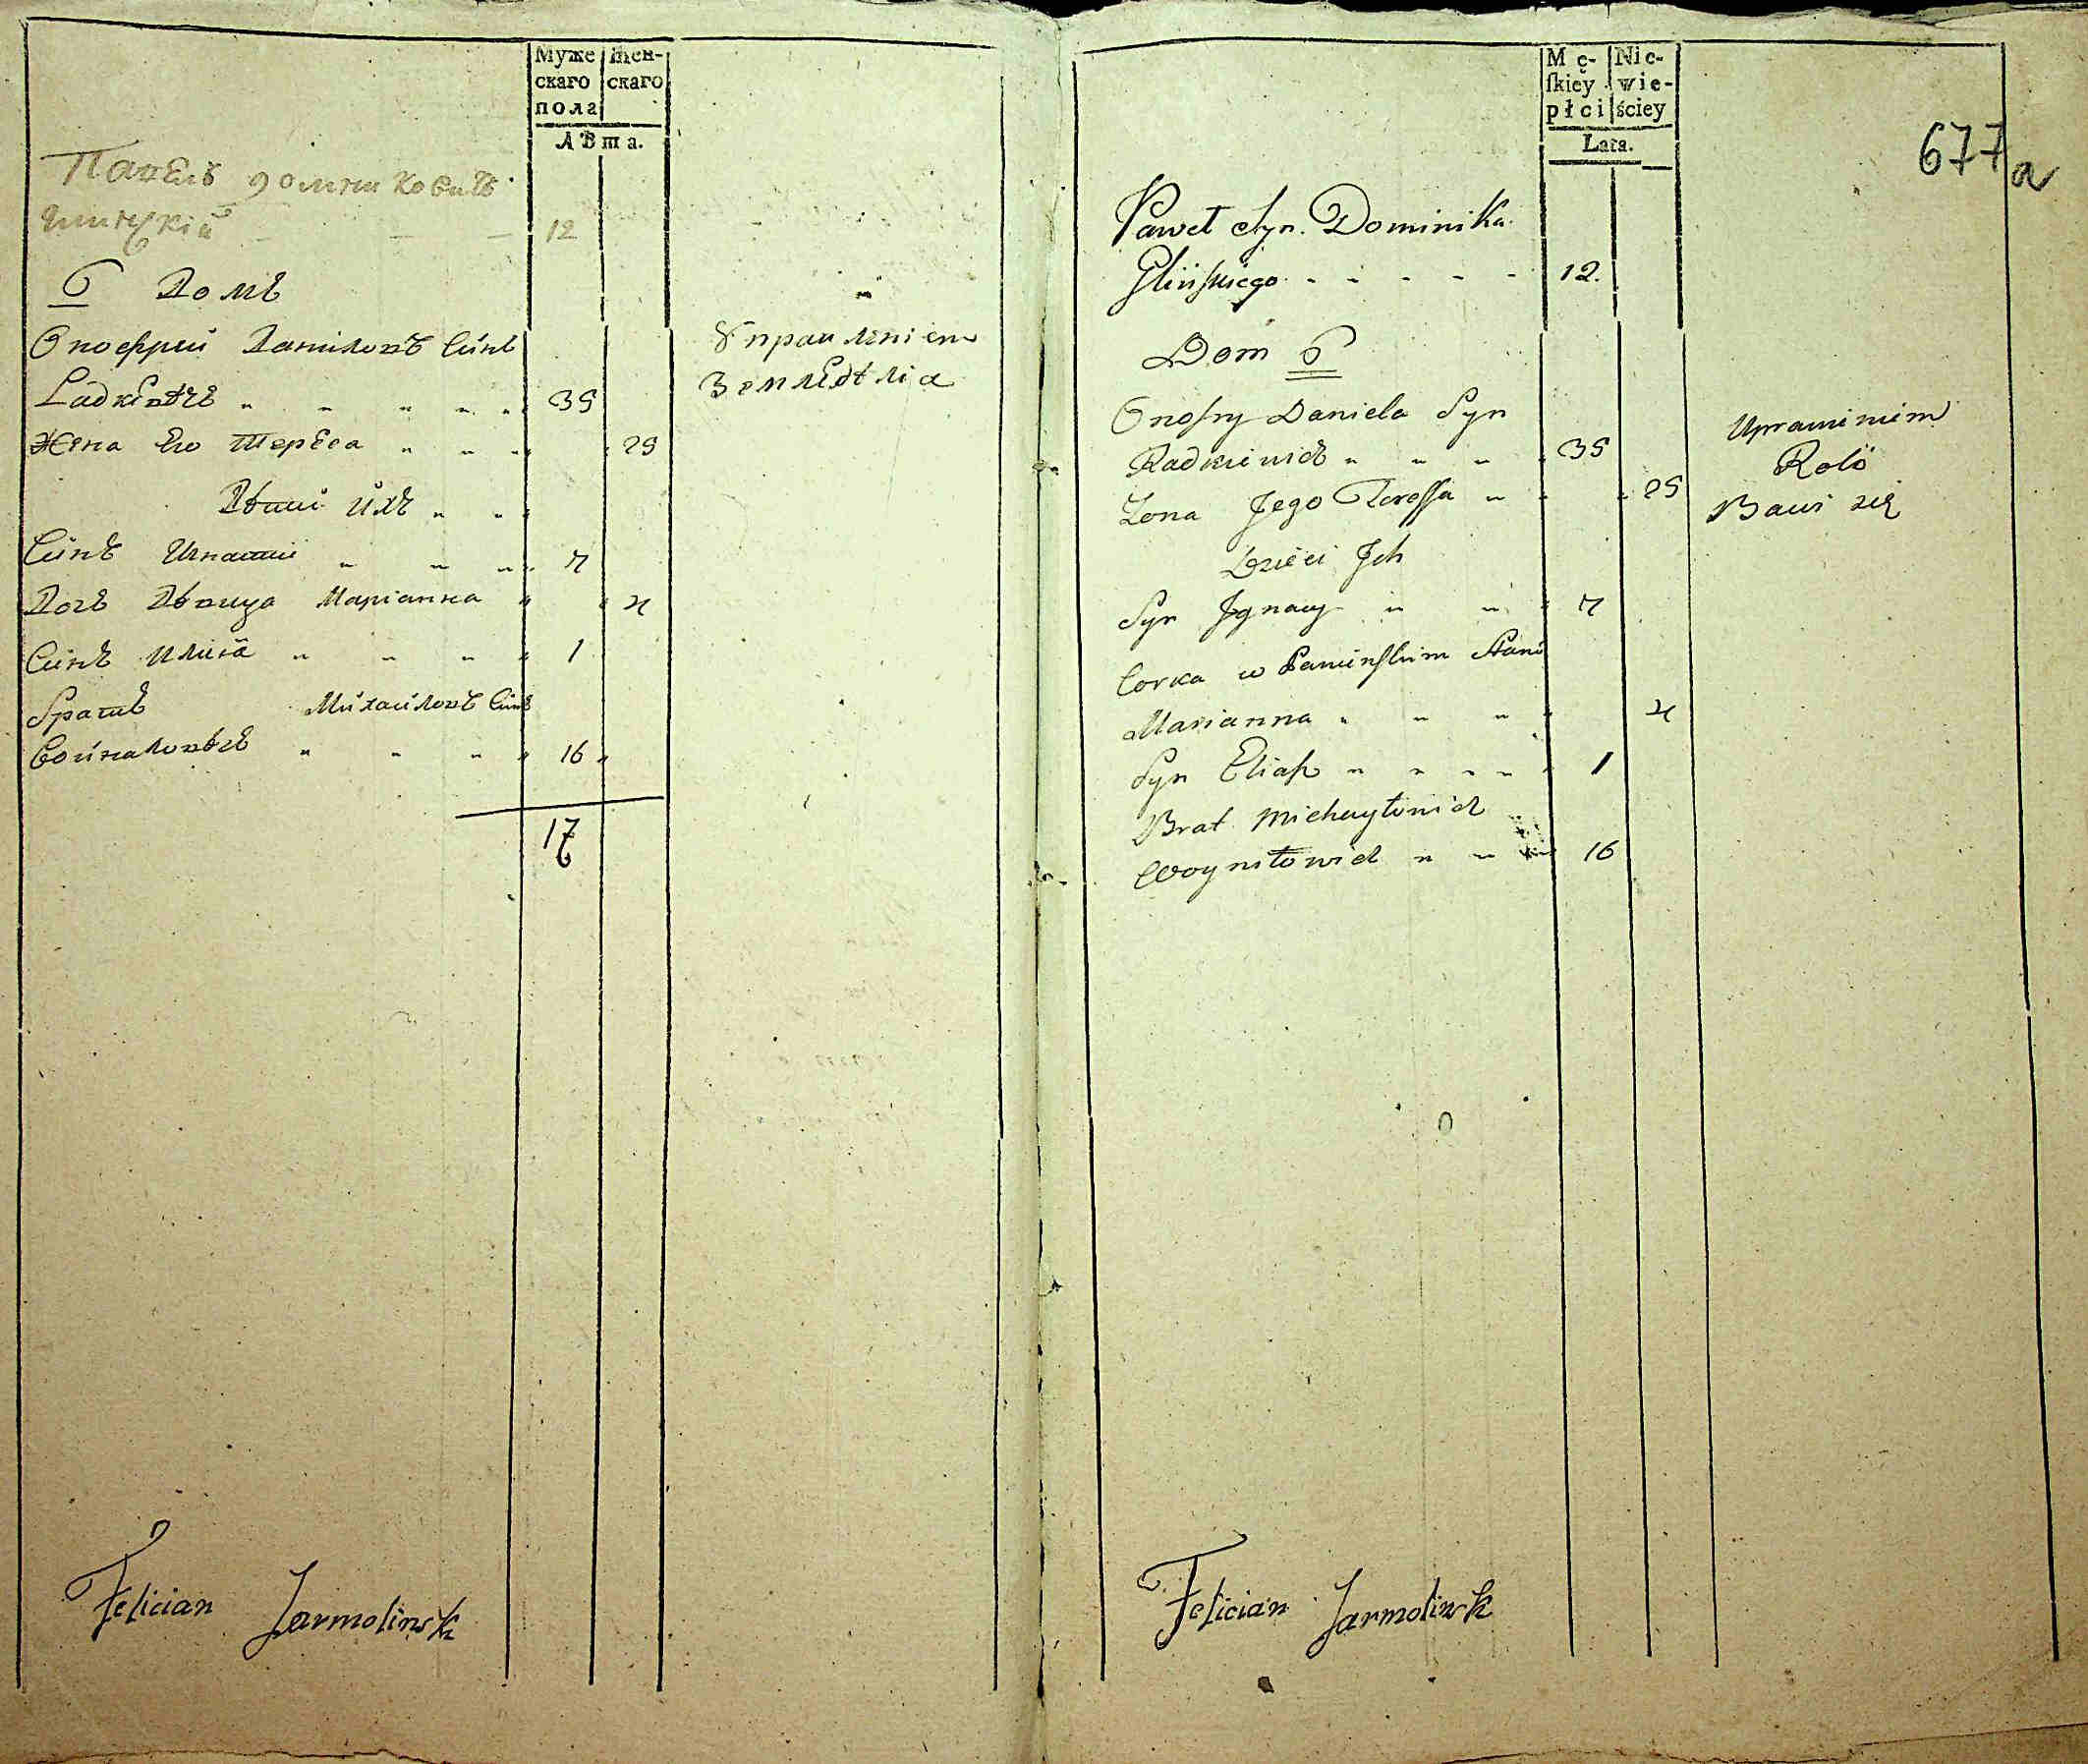 Муже
скаго
пола
Жен-
скаго
лѣта.
Павелъ доминковичъ
12
6 Домъ
Онофрий Даниловъ Синъ
Радкѣвичъ " " " " " 35
Жена Его Тереса " " " 25
Дѣти ихъ " "
Синъ Игнатий " " " 7
Дочъ Дѣвица Марианна " " 4
Синъ Илия " " " " 1
Братъ Михайловъ Синъ
Войналовичъ " " " " 16
17
6
Управлениемъ
Земледѣлиа
Felician Jarmolinsk
Mę-
ſkiey
płci
Nie-
wie-
ściey
Lata.
677a
Paweł Syn. Dominika
Glińskiego - - - - - 12.
Dom 6
Onofry Daniela Syn
Radkiewicz " " " " 35
Żona Jego Teressa " " " 25
Dzieci Ich
Syn Ignacy " " " 7
Corka w Panieńskim Stanie
Marianna " " " " 4
Syn Eliasz " " " " " 1
Brat Michayłowicz
Woyniłowicz " " " 16
Uprawieniem
Roli
Bawi się
Felician Jarmolinsk